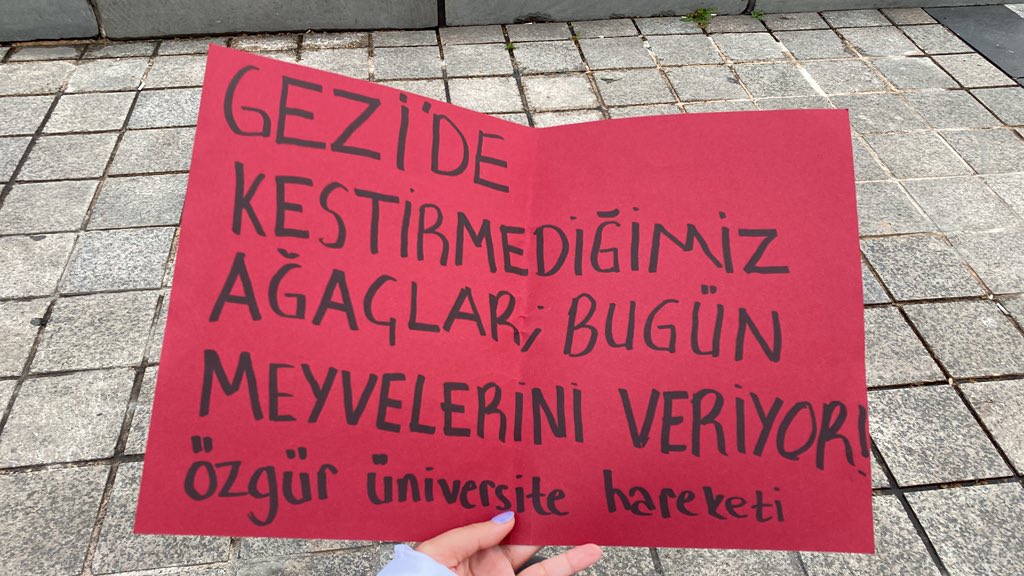 GEZİ'DE
KESTİRMEDİĞİMİZ
AĞAÇLAR; BUGÜN
MEYVELERİNİ VERİYOR!
özgür üniversite hareketi